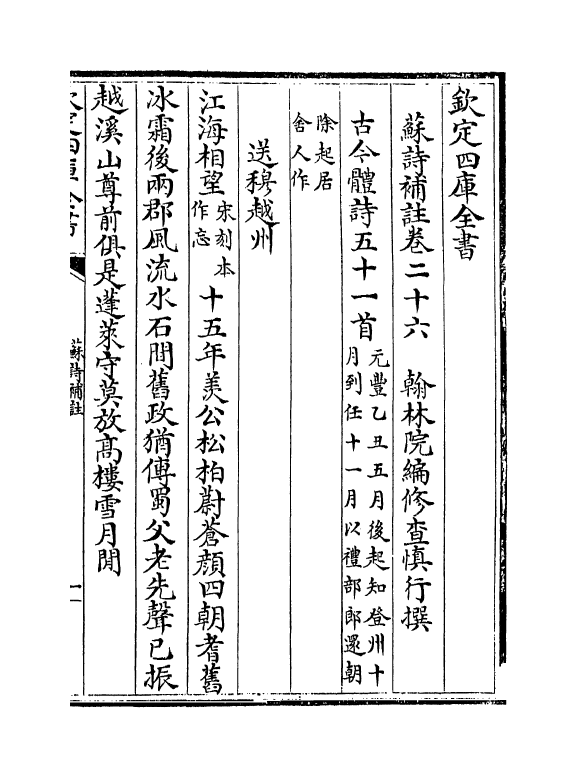 欽定四庫全書
蘇詩補註卷二十六　翰林院編修查慎行撰
古今體詩五十一首元豐乙丑五月後起知登州十
月到任十一月以禮部郎還朝
除起居
舍人作
送穆越州
江海相望宋刻本
作忘十五年羡公松柏蔚蒼顔四朝耆舊
冰霜後兩郡風流水石間舊政猶傳蜀父老先聲已振
越溪山尊前俱是蓬萊守莫放高樓雪月閒
欽定四庫全書
蘇詩補註
一